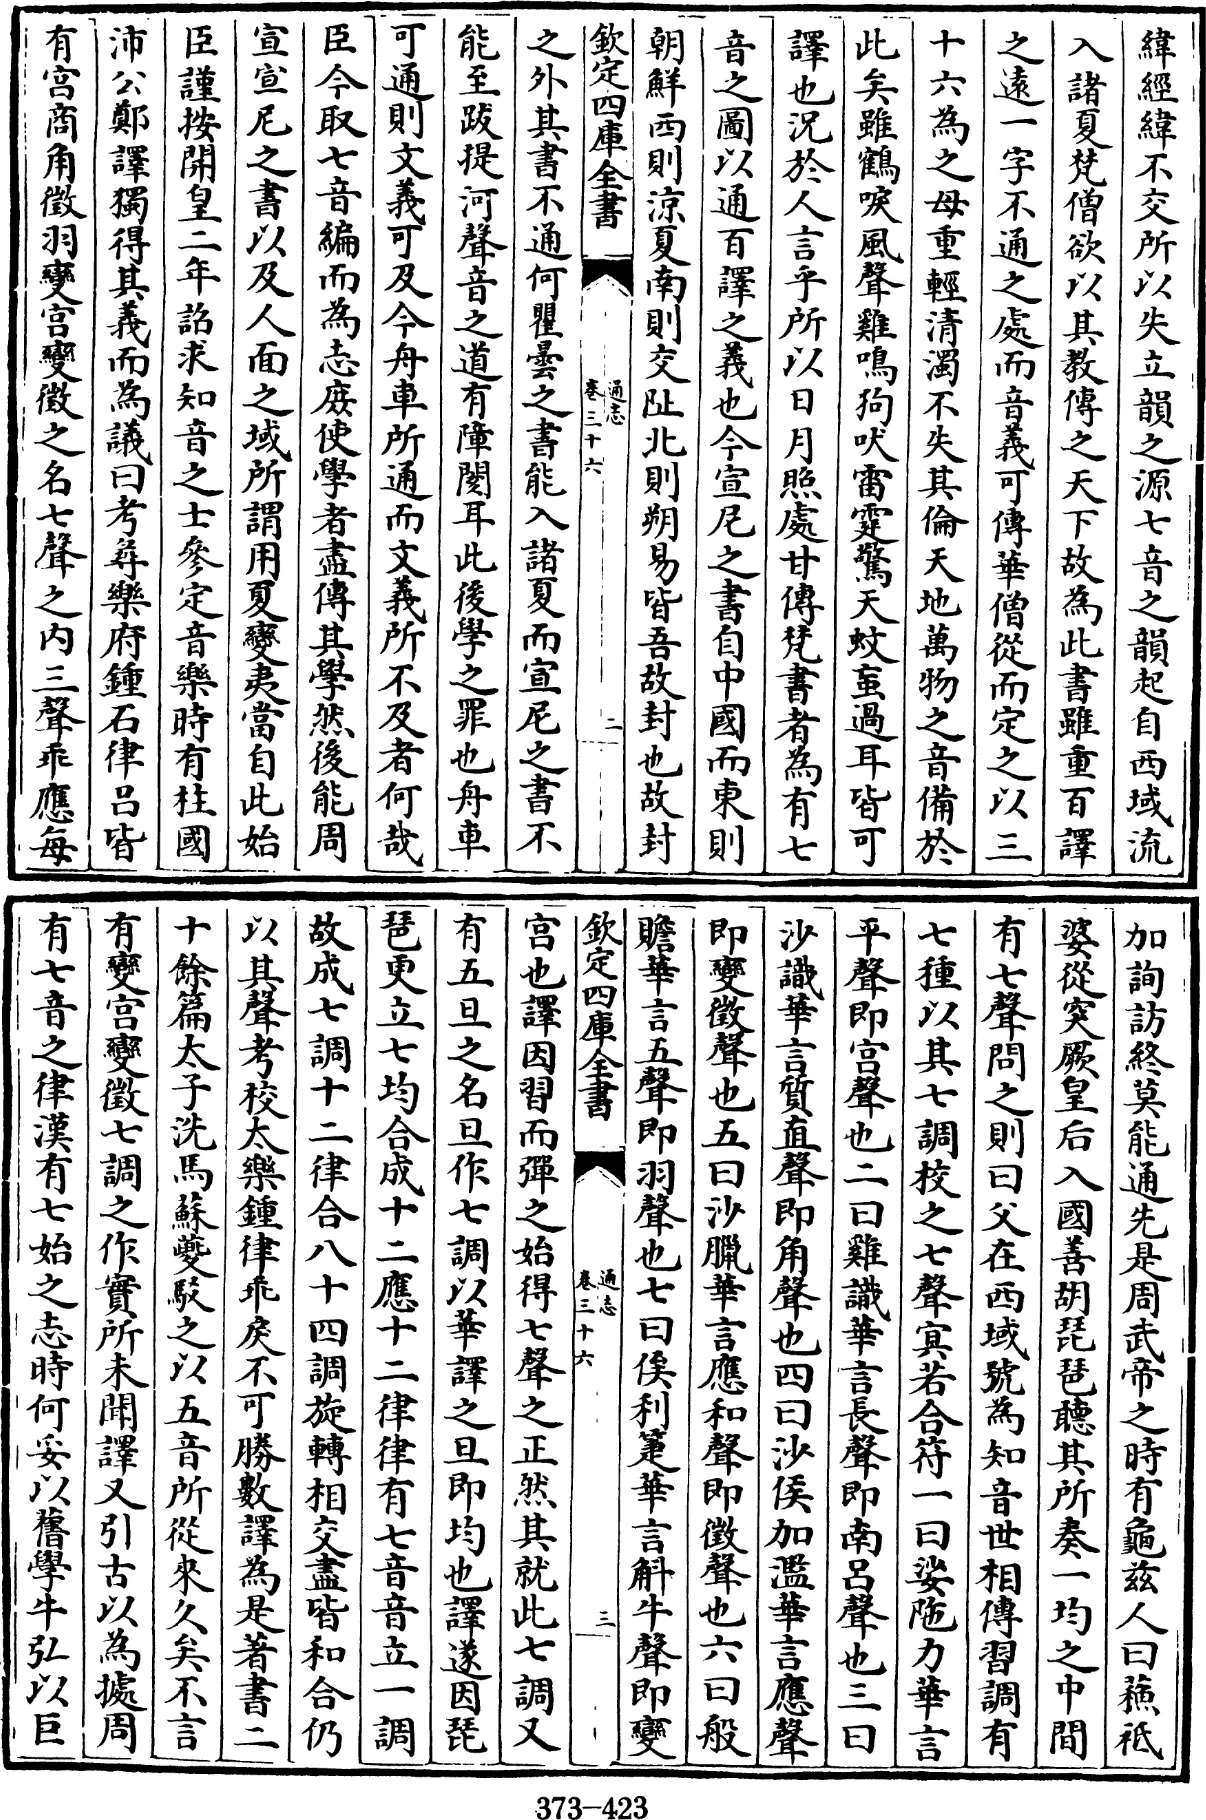 緯經緯不交所以失立韻之源七音之韻起自西域流
入諸夏梵僧欲以其教傳之天下故為此書雖重百譯
之遠一字不通之處而音義可傳華僧從而定之以三
十六為之母重輕清濁不失其倫天地萬物之音備於
此矣雖鶴唳風聲雞鳴狗吠雷霆驚天蚊䖟過耳皆可
譯也況於人言乎所以日月照處甘傳梵書者為有七
音之圖以通百譯之義也今宣尼之書自中國而東則
朝鮮西則涼夏南則交阯北則朔易皆吾故封也故封
欽定四庫全書
通志
卷三十六
二
之外其書不通何瞿曇之書能入諸夏而宣尼之書不
能至跋提河聲音之道有障閡耳此後學之罪也舟車
可通則文義可及今舟車所通而文義所不及者何哉
臣今取七音編而為志庻使學者盡傳其學然後能周
宣宣尼之書以及人面之域所謂用夏變夷當自此始
臣謹按開皇二年詔求知音之士參定音樂時有柱國
沛公鄭譯獨得其義而為議曰考尋樂府鍾石律呂皆
有宫商角徵羽變宫變徵之名七聲之内三聲乖應每
加詢訪終莫能通先是周武帝之時有龜兹人曰蘓祗
婆從突厥皇后入國善胡琵琶聽其所奏一均之中間
有七聲問之則曰父在西域號為知音世相傳習調有
七種以其七調校之七聲㝠若合符一曰娑陁力華言
平聲即宫聲也二曰雞識華言長聲即南呂聲也三曰
沙識華言質直聲即角聲也四曰沙侯加濫華言應聲
即變徵聲也五曰沙臘華言應和聲即徵聲也六曰般
贍華言五聲即羽聲也七曰俟利箑華言斛牛聲即變
欽定四庫全書
通志
卷三十六
三
宫也譯因習而彈之始得七聲之正然其就此七調又
有五旦之名旦作七調以華譯之旦即均也譯遂因琵
琶更立七均合成十二應十二律律有七音音立一調
故成七調十二律合八十四調旋轉相交盡皆和合仍
以其聲考校太樂鍾律乖戾不可勝數譯為是著書二
十餘篇太子洗馬蘇夔駁之以五音所從來久矣不言
有變宫變徵七調之作實所未聞譯又引古以為據周
有七音之律漢有七始之志時何妥以舊學牛弘以巨
373-423